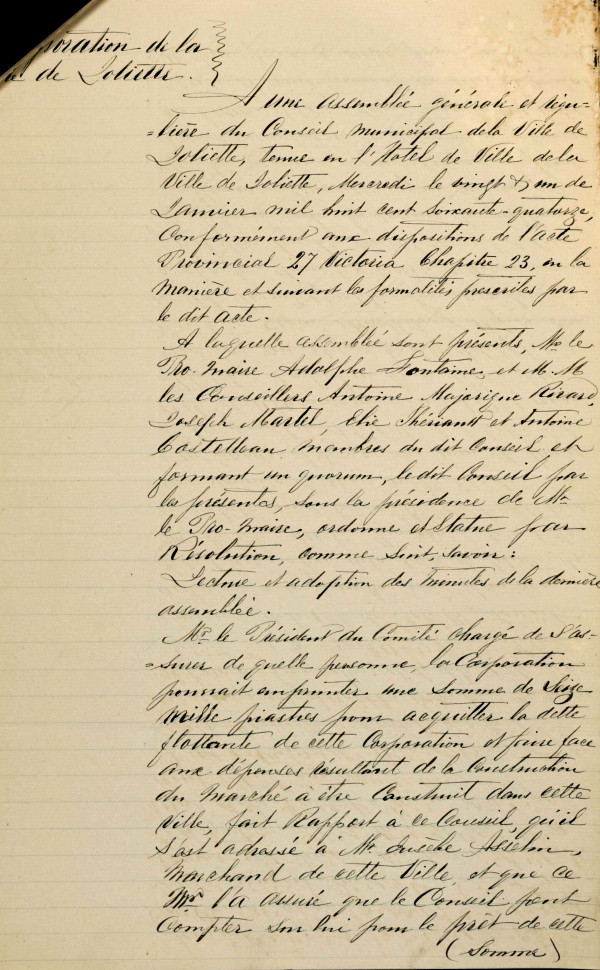 poration de la
de Joliette.
A une assemblée générale et régu-
=lière du Conseil municipal de la Ville de
Joliette, tenue en l'Hotel de Ville de la
Ville de Joliette, Mercredi le vingt & un de
Janvier mil huit cent soixante-quatorze,
Conformément aux dispositions de l'acte
Provincial 27 Victoria Chapitre 23, en la
manière et suivant les formalités prescrites par
le dit acte.
A laquelle assemblée sont présents, Mr le
Pro-Maire Adolphe Fontaine, et M. M
les Conseillers Antoine Majorique Rivard,
Joseph Martel, Elie Thériault et Antoine
membres du dit Conseil et
formant un quorum, le dit Conseil par
les présentes, sous la présidence de Mr
le Pro-Maire, ordonne et Statue par
Résolution, comme suit, savoir:
Lecture et adoption des minutes de la dernière
assemblée.
Mr le Président du Comité chargé de s'as-
=surer de quelle personne, la Corporation
pourrait emprunter une somme de Seize
mille piastres pour acquitter la dette
flottante de cette Corporation et faire face
aux dépenses résultant de la Construction
du Marché à être Construit dans cette
Ville, fait Rapport à ce Conseil, qu'il
s'est adressé à Mr. Eusèbe Asselin,
Marchand de cette Ville, et que ce
Mr l'a assuré que le Conseil peut
Compter sur lui pour le prêt de cette
(Somme)